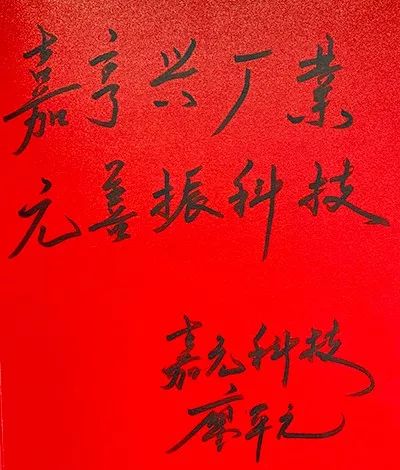 嘉亨兴厂業
元善振科技
嘉元科技
廖平元